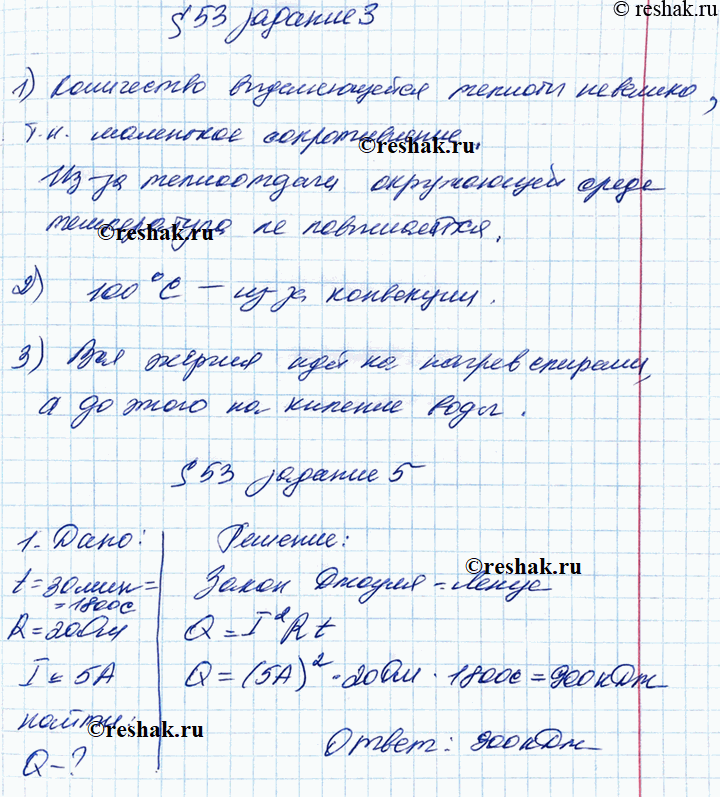 ©reshak.ru
§ 53 задание 3
1) Количество выделяющейся теплоты невелико,
т.к. маленькое сопротивление.
©reshak.ru
Из-за теплоотдачи окружающей среде
температура не повышается.
©reshak.ru
2) 100°C – из за конвекции.
3) Вся энергия идёт на нагрев спирали,
а до этого на кипение воды.
§ 53 задание 5
1. Дано: Решение:
©reshak.ru
t = 30 мин = Закон Джоуля-Ленца
= 1800с
R = 20 Ом Q = I²Rt
I = 5А Q = (5А)² · 20 Ом · 1800с = 900кДж
найти:
©reshak.ru
Ответ: 900кДж
Q – ?